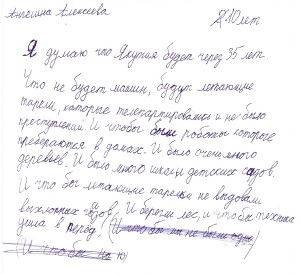 Ангелина Алексеева 10 лет
Я думаю что Якутия будет через 35 лет.
Что не будет машин, будут летающие
тарели, которые телепартировались и не было
преступлений. И чтобы были роботы которые
пребраются в домах. И было очень много
деревьев. И было много школы детских садов.
И что бы летающие тарелки не выдовали
выхлопных газов. И берегли лес, и чтобы техника
ушла в перёд!
(И что бы на